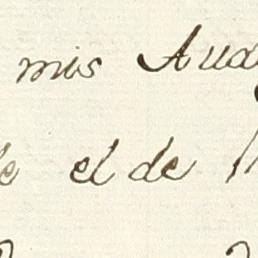 mis Aud
el de